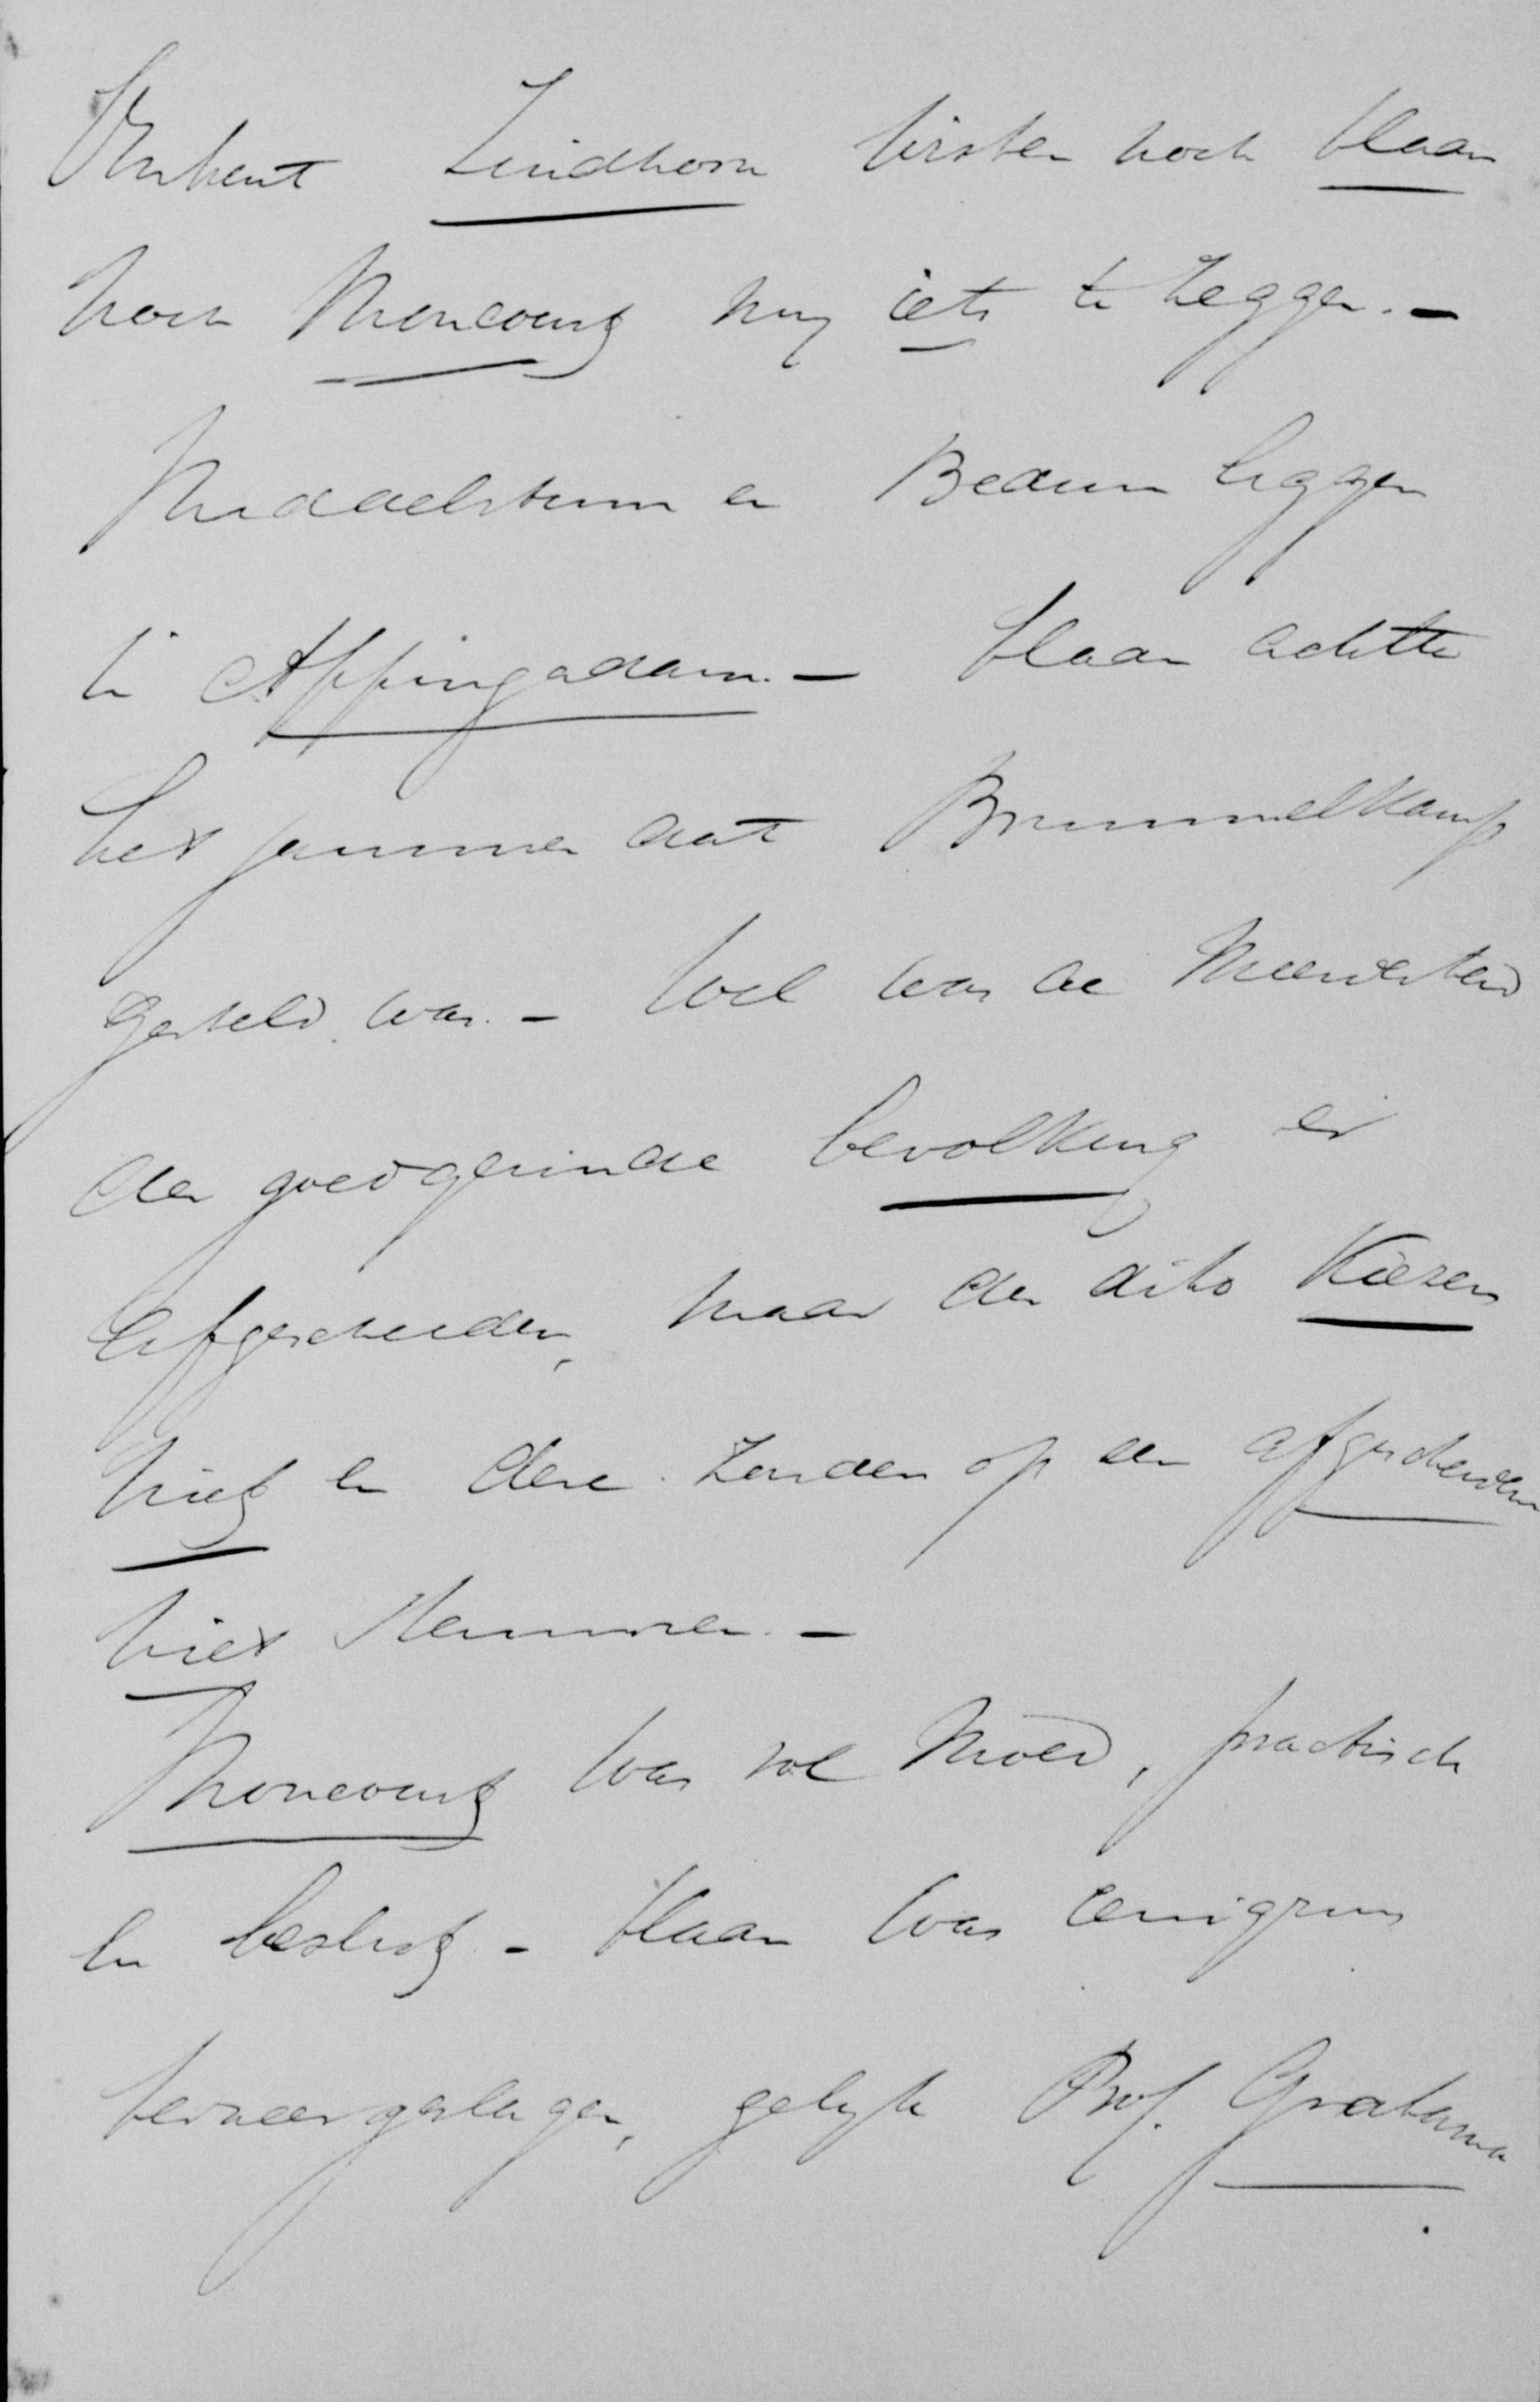 Omtrent Zuidhorn wisten noch Blaau
noch Moncourt mij iets te zeggen. -
Middelstum en Bedum liggen
in Appingadam. - Blaau achtte
het jammer dat Brummelkamp
gesteld was. - Wel was de meerderheid
der goedgezinde bevolking er
afgescheiden, maar der dito Kiezers
niet en deze zouden op een afgescheiden
niet stemmen. -
Moncourt was vol moed, practisch
en beslist. - Blaau was eenigzins
terneergeslagen, gelijk Prof. Gratama